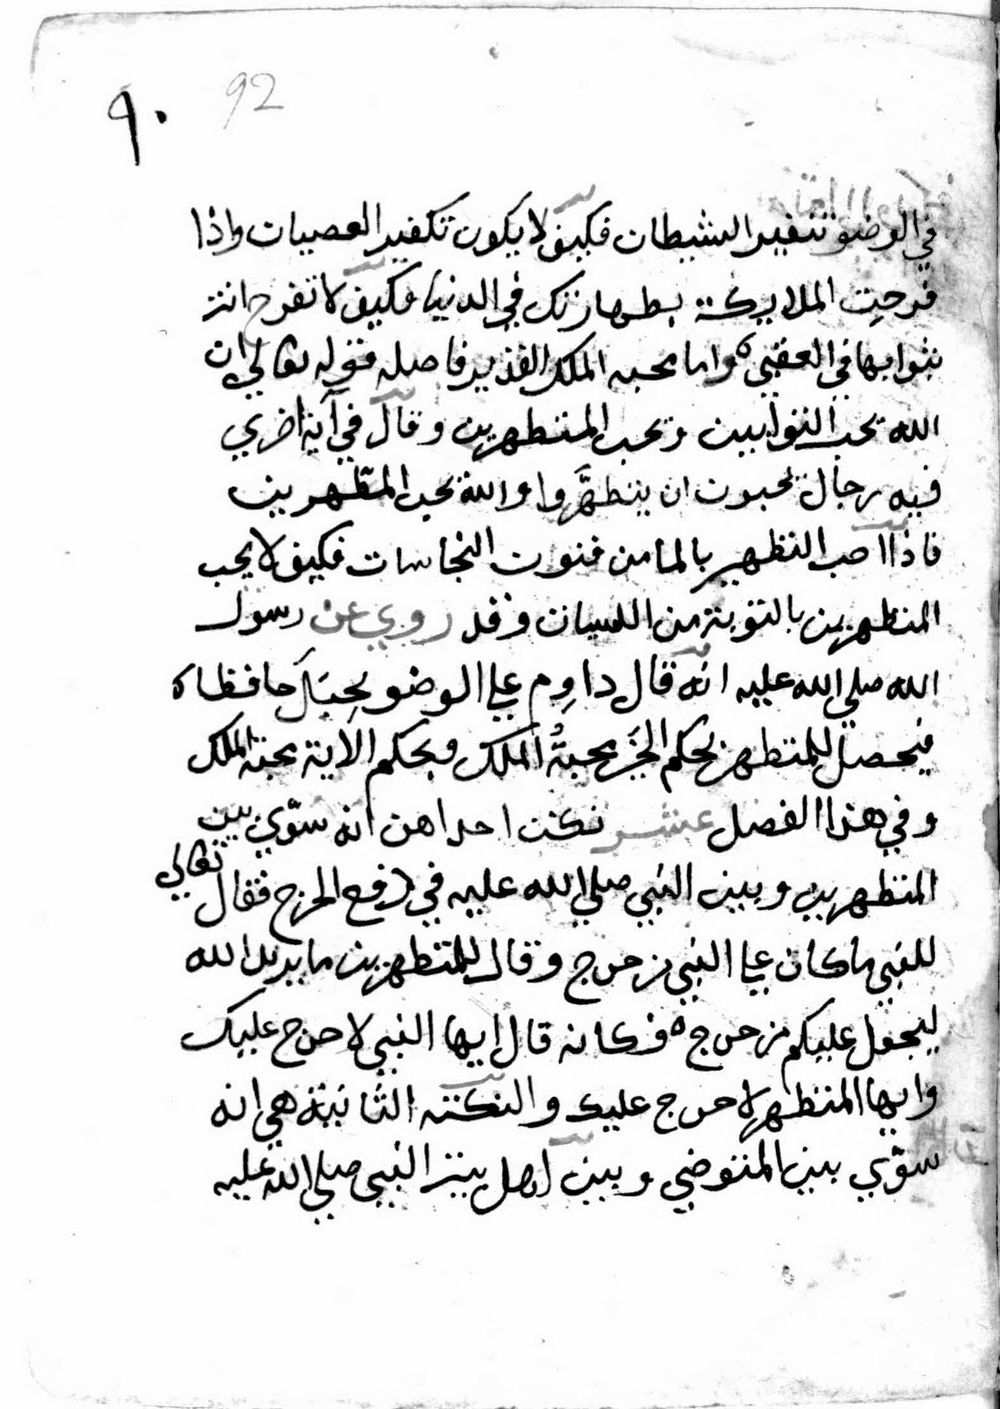 ٩٠ 92
في الوضو تنفير الشيطان فكيف لا يكون تكفير العصيان واذا
فرحت الملايكة بطهارتك في الدنيا فكيف لا تفرح انت
بثوابها في العقبي ه واما محبه الملك القدير فاصله قوله تعالي ان
الله يحب التوابين ويحب المتطهرين وقال في آية اخري
فيه رجال يحبون ان يتطهّروا والله يحب المطّهرين
فاذا احب التطهير بالما من فنون النجاسات فكيف لا يحب
المتطهرين بالتوبة من السيات وقد روي عن رسول
الله صلي الله عليه انه قال داوِم علي الوضو يحبك حافظاه
فيحصل للمتطهر بحكم الخبر محبةُ الملك وبحكم الاية محبة الملك
وفي هذا الفصل عشر نكت احداهن انه سوّي بين
المتطهرين وبين النبي صلي الله عليه في رفع الحرج فقال تعالي
للنبي ما كان علي النبي من حرج وقال للمتطهرين ما يريد الله
ليجعل عليكم من حرج ه فكانه قال ايها النبي لا حرج عليك
وايها المتطهر لا حرج عليك والنكته الثانية هي انه
سوّي بين المتوضي وبين اهل بيت النبي صلي الله عليه